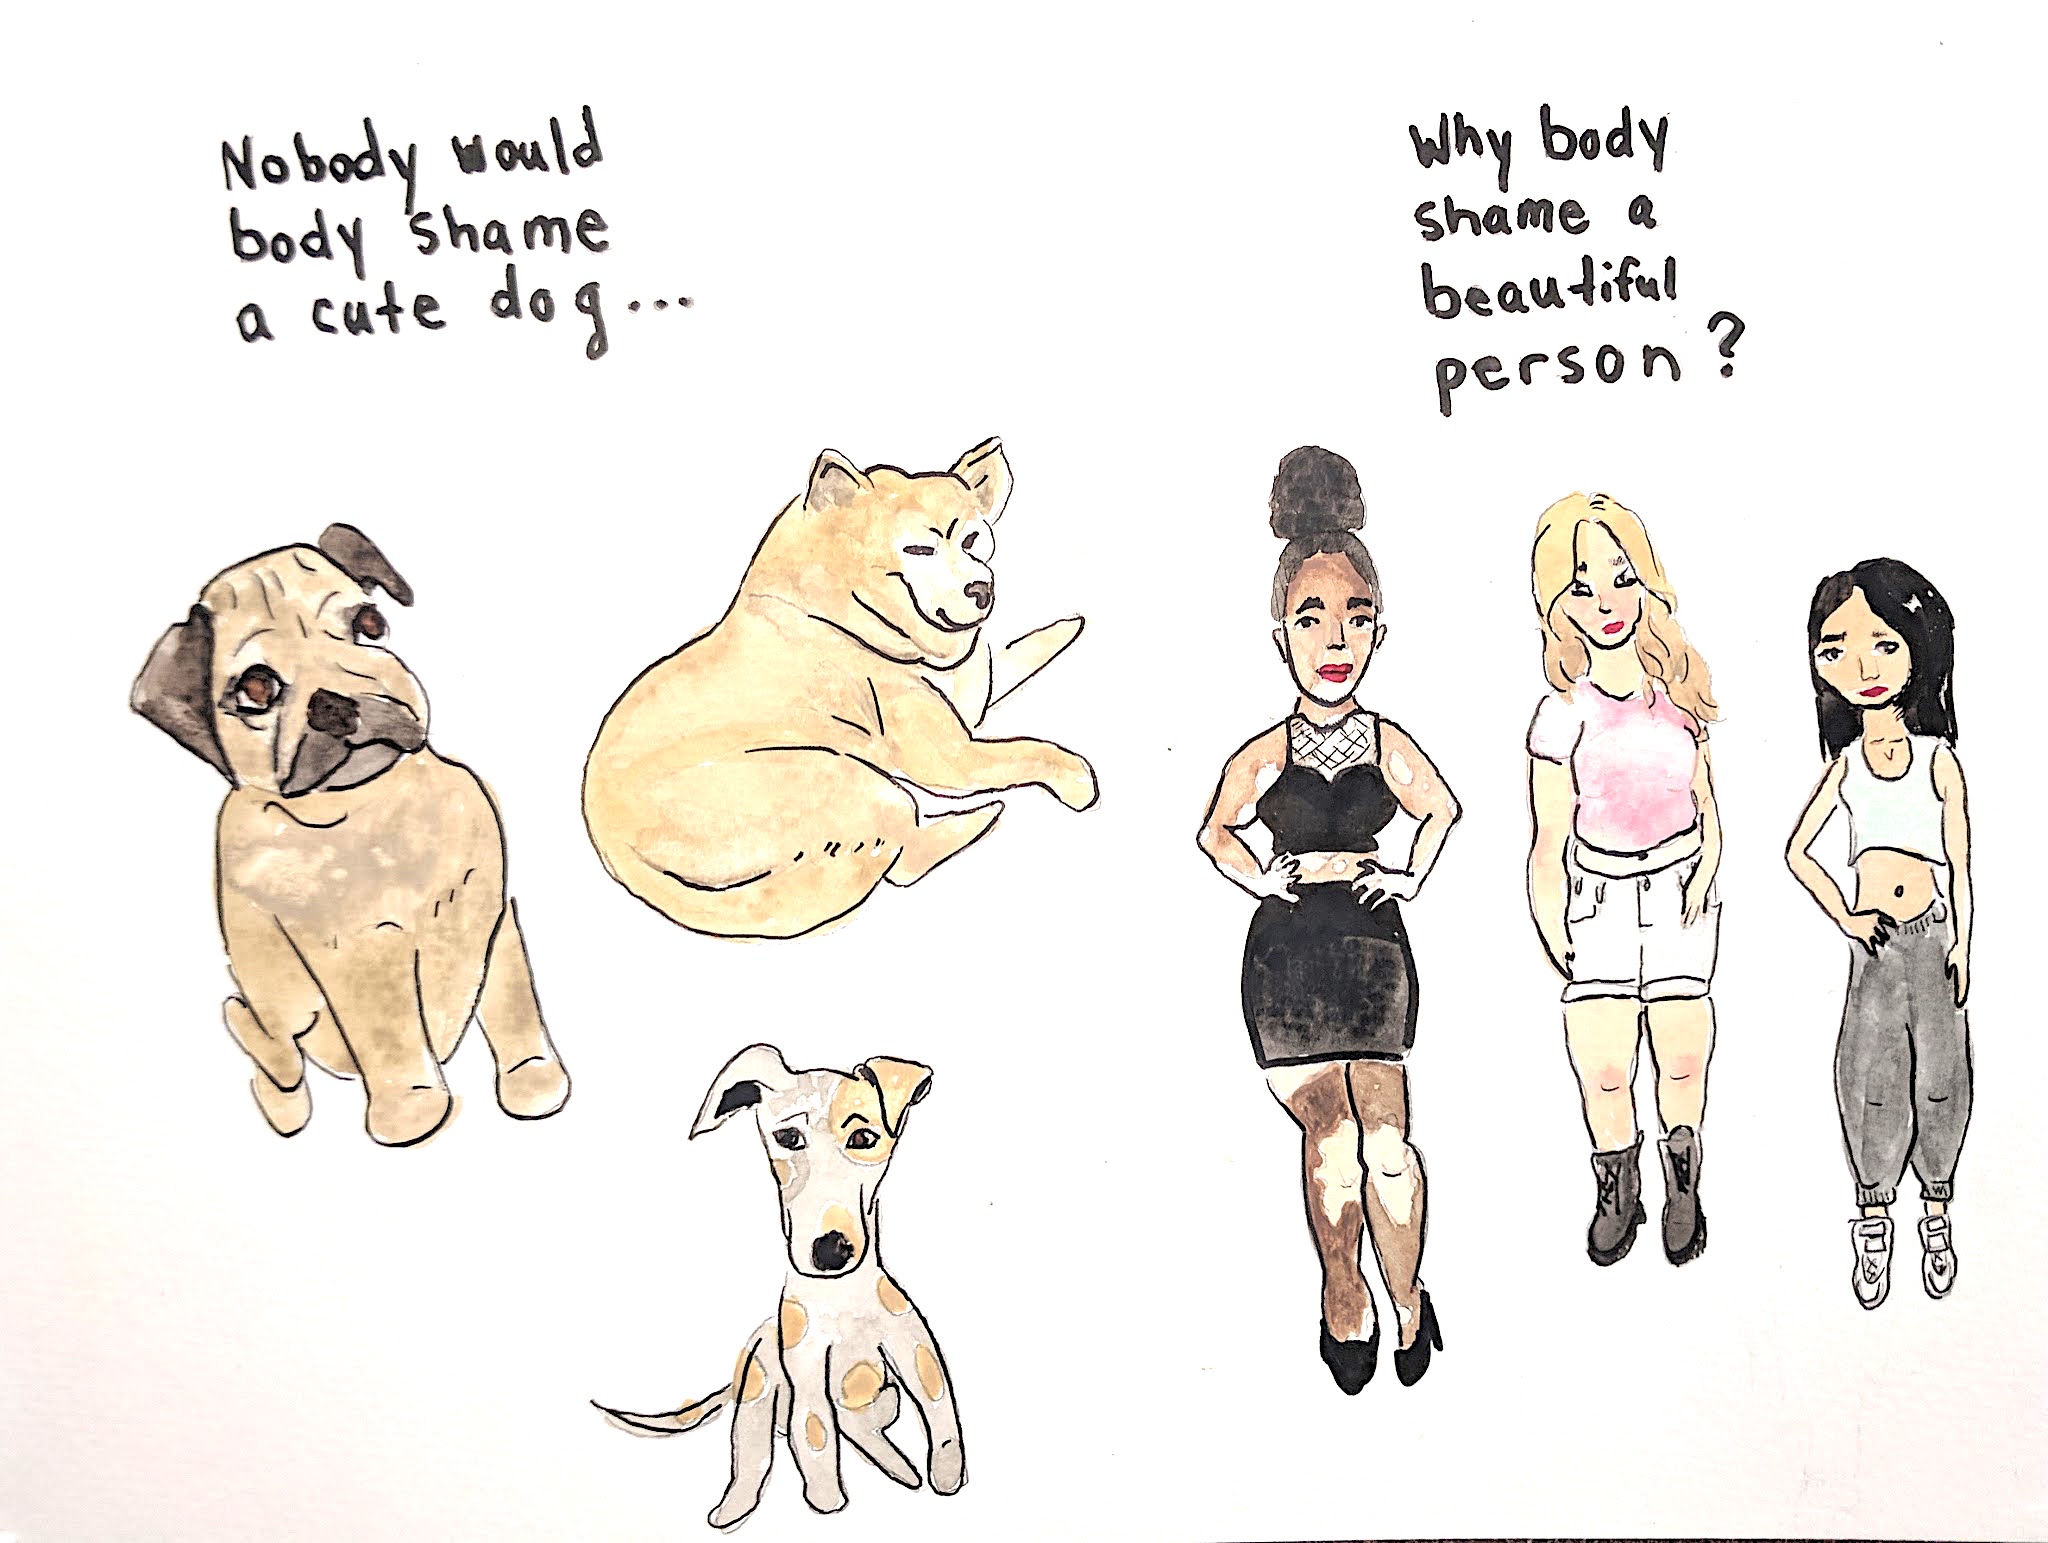 Nobody would
body shame
a cute dog...
Why body
shame a
beautiful
person?